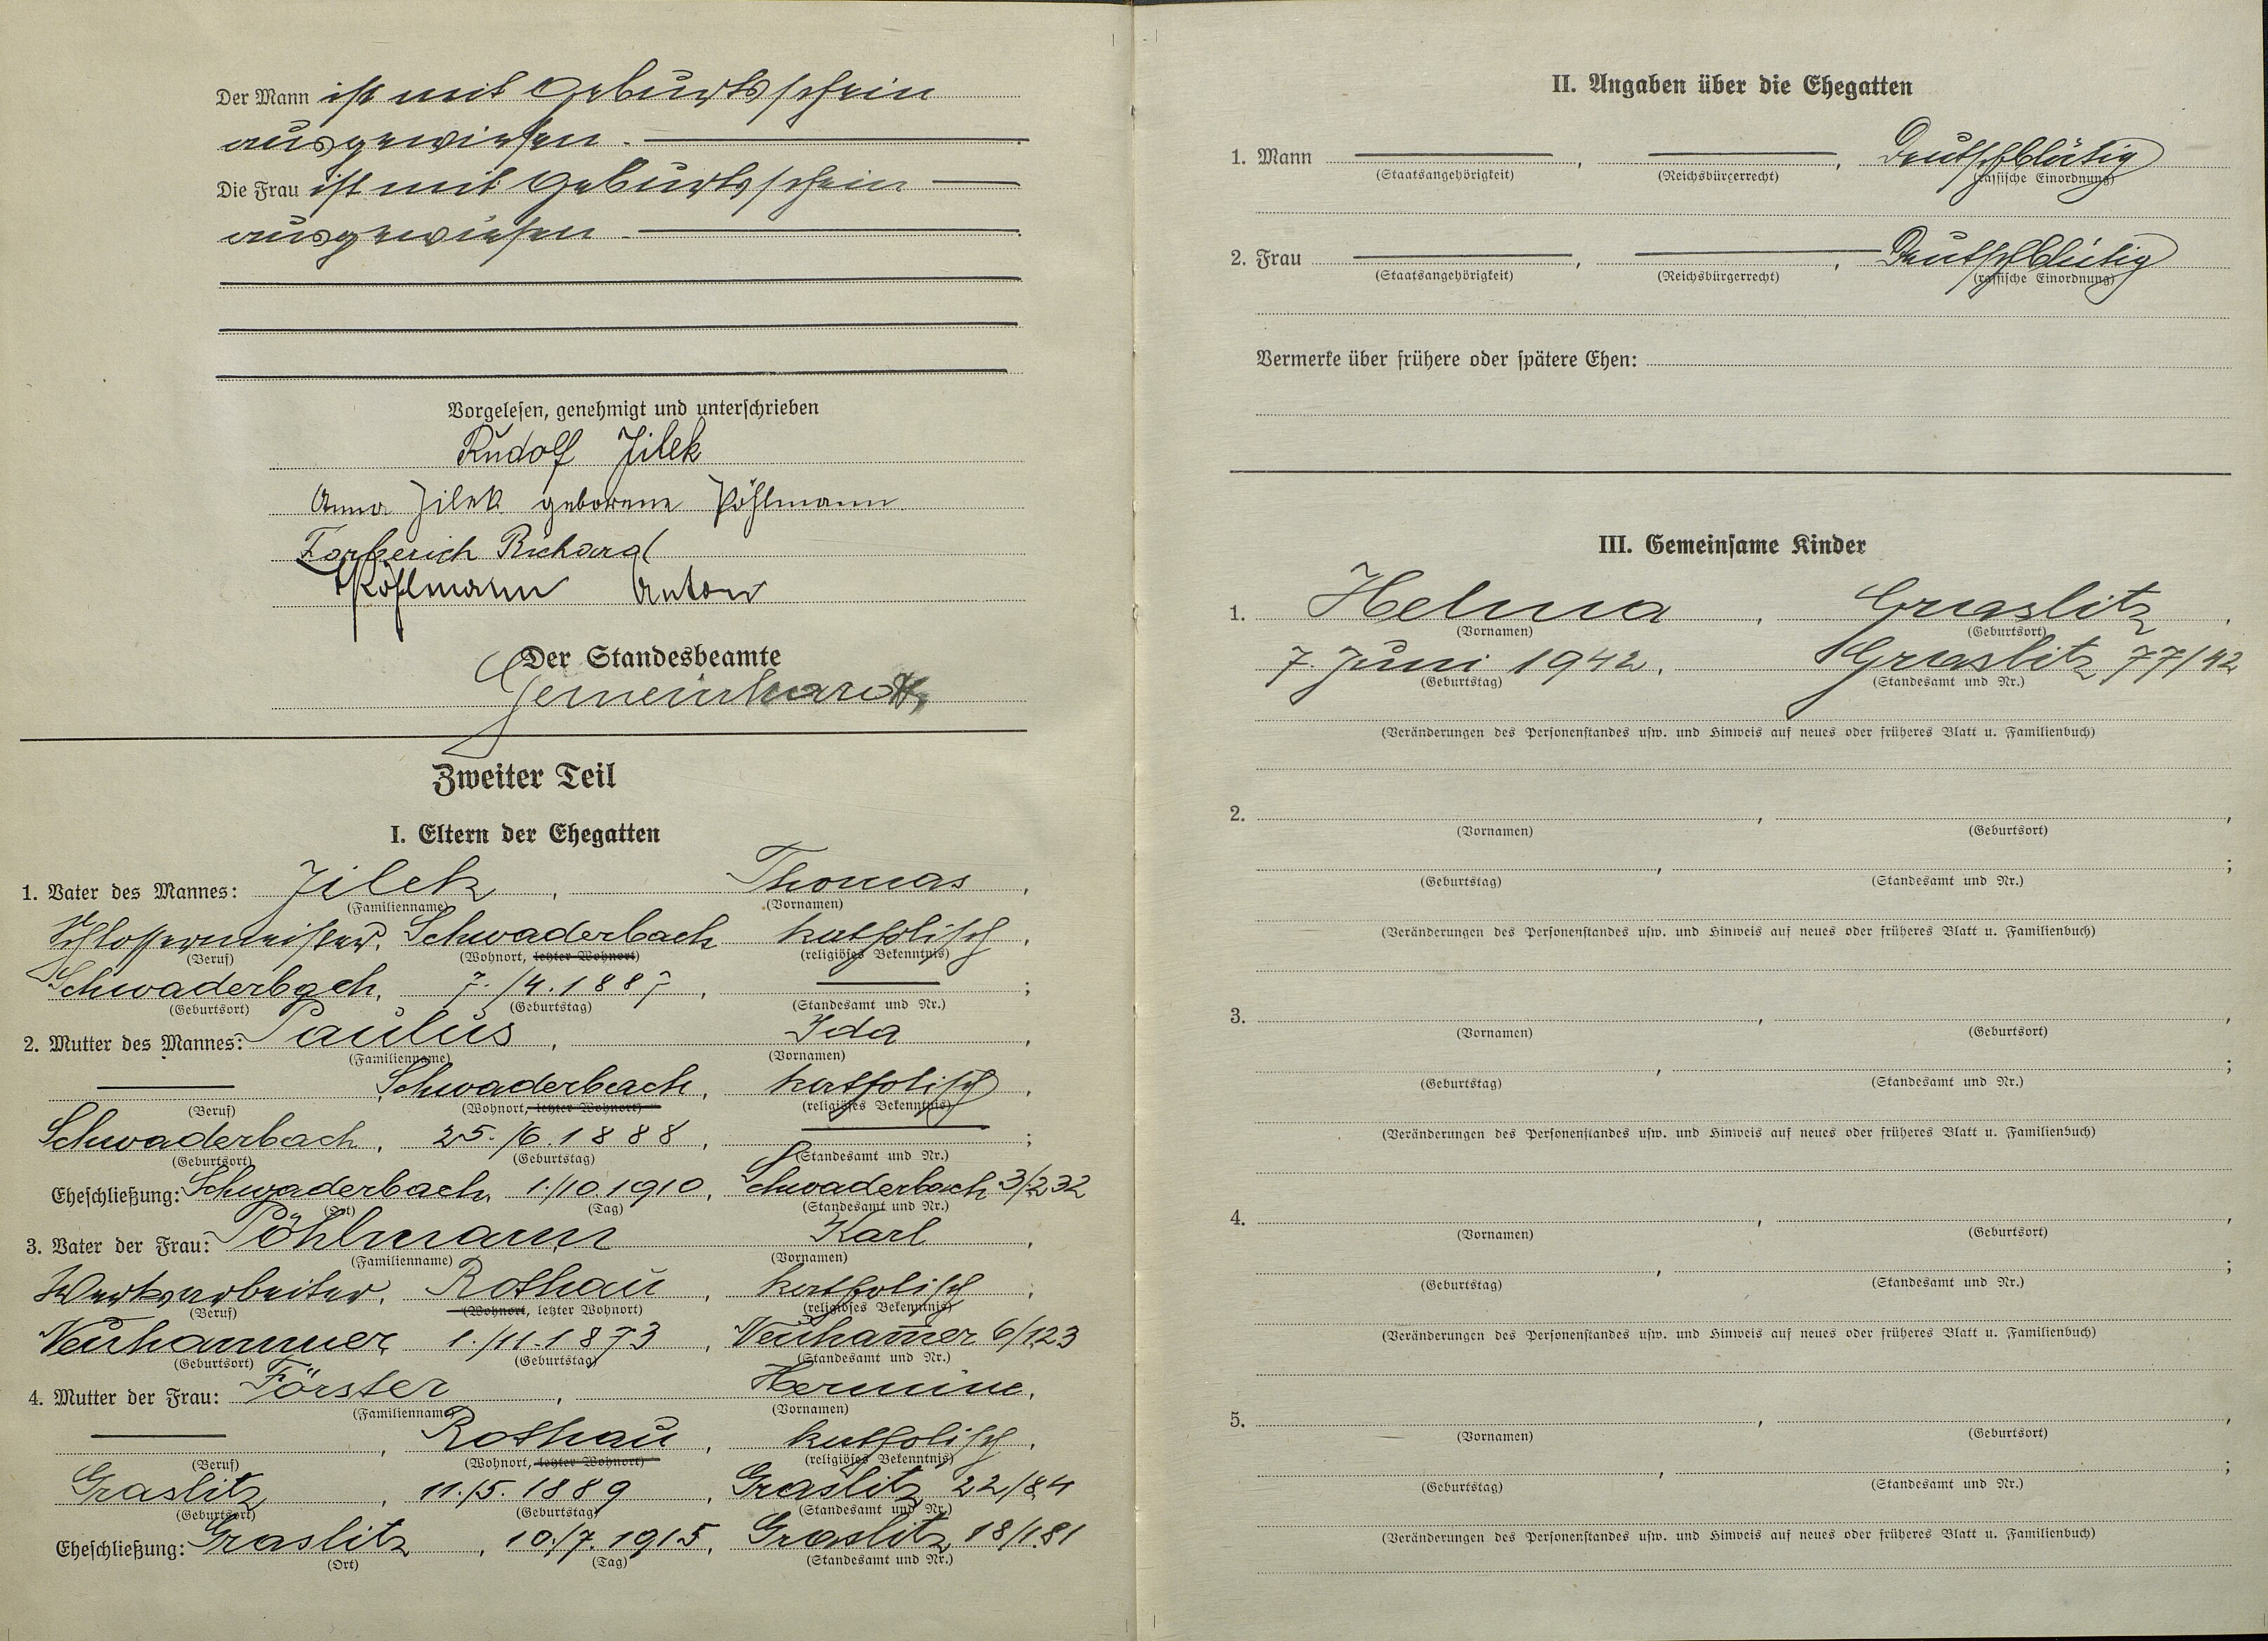 Der Mann ist mit Geburtsschein
ausgewiesen.
Die Frau ist mit Geburtsschein
ausgewiesen.
Vorgelesen, genehmigt und unterschrieben
Rudolf Jilek
Anna Jilek geborene Pöhlmann.
Richard
Pöhlmann Anton
Der Standesbeamte
Gemeinhardt
Zweiter Teil
I. Eltern der Ehegatten
1. Vater des Mannes: Jilek, Thomas,
(Familienname) (Vornamen)
Schlossermeister, Schwaderbach katholisch,
(Beruf) (Wohnort, letzter Wohnort) (religiöses Bekenntnis)
Schwaderbach, 7./4.1887, ;
(Geburtsort) (Geburtstag) (Standesamt und Nr.)
2. Mutter des Mannes: Paulus, Ida,
(Familienname) (Vornamen)
Schwaderbach, katholisch,
(Beruf) (Wohnort, letzter Wohnort) (religiöses Bekenntnis)
Schwaderbach, 25./6.1888, ;
(Geburtsort) (Geburtstag) (Standesamt und Nr.)
Eheschließung: Schwaderbach, 1./10.1910, Schwaderbach 3/232
(Ort) (Tag) (Standesamt und Nr.)
3. Vater der Frau: Pöhlmann, Karl,
(Familienname) (Vornamen)
Werksarbeiter, Rothau, katholisch;
(Beruf) (Wohnort, letzter Wohnort) (religiöses Bekenntnis)
Neuhammer, 1./11.1873, Neuham̄er 6/123
(Geburtsort) (Geburtstag) (Standesamt und Nr.)
4. Mutter der Frau: Förster, Hermine,
(Familienname) (Vornamen)
, Rothau, katholisch,
(Beruf) (Wohnort, letzter Wohnort) (religiöses Bekenntnis)
Graslitz, 11./5.1889, Graslitz 22/84
(Geburtsort) (Geburtstag) (Standesamt und Nr.)
Eheschließung: Graslitz, 10./7.1915, Graslitz 18/181
(Ort) (Tag) (Standesamt und Nr.)
II. Angaben über die Ehegatten
1. Mann , , Deutschblütig
(Staatsangehörigkeit) (Reichsbürgerrecht) (rassische Einordnung)
2. Frau , , Deutschblütig
(Staatsangehörigkeit) (Reichsbürgerrecht) (rassische Einordnung)
Vermerke über frühere oder spätere Ehen:
III. Gemeinsame Kinder
1. Helma, Graslitz,
(Vornamen) (Geburtsort)
7. Juni 1942, Graslitz 77/42
(Geburtstag) (Standesamt und Nr.)
(Veränderungen des Personenstandes usw. und Hinweis auf neues oder früheres Blatt u. Familienbuch)
2. , ,
(Vornamen) (Geburtsort)
, ;
(Geburtstag) (Standesamt und Nr.)
(Veränderungen des Personenstandes usw. und Hinweis auf neues oder früheres Blatt u. Familienbuch)
3. , ,
(Vornamen) (Geburtsort)
, ;
(Geburtstag) (Standesamt und Nr.)
(Veränderungen des Personenstandes usw. und Hinweis auf neues oder früheres Blatt u. Familienbuch)
4. , ,
(Vornamen) (Geburtsort)
, ;
(Geburtstag) (Standesamt und Nr.)
(Veränderungen des Personenstandes usw. und Hinweis auf neues oder früheres Blatt u. Familienbuch)
5. , ,
(Vornamen) (Geburtsort)
, ;
(Geburtstag) (Standesamt und Nr.)
(Veränderungen des Personenstandes usw. und Hinweis auf neues oder früheres Blatt u. Familienbuch)